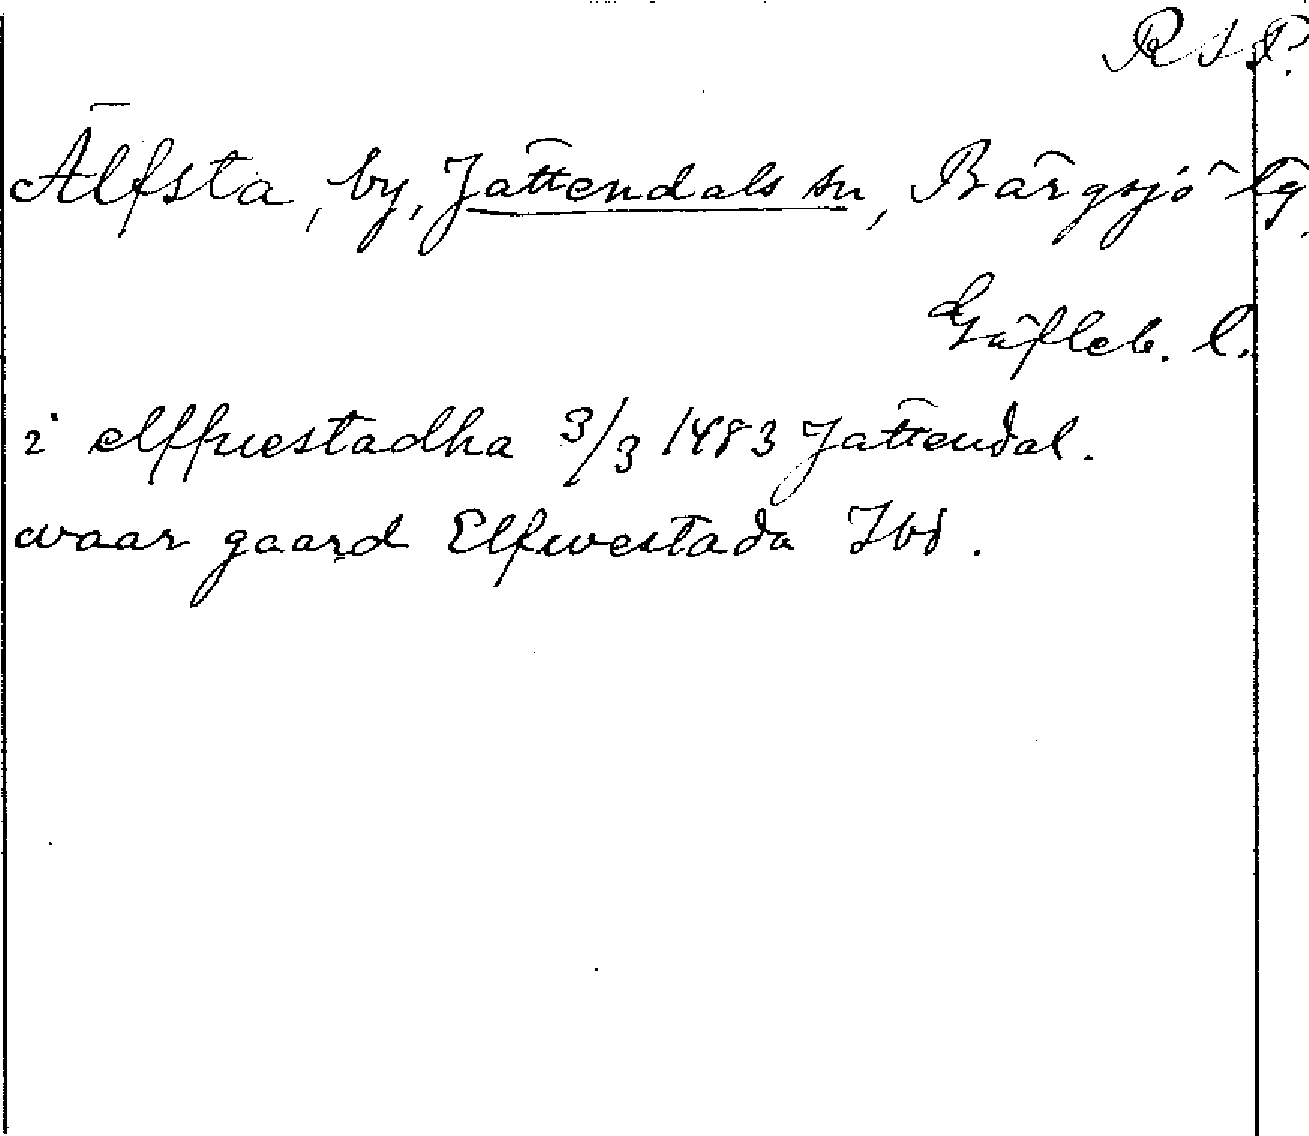 R S P.
Älfsta, by, Jättendals sn, Bärgsjö tg.
Gäfleb. l.
i elffuestadha 3/3 1483 Jättendal.
waar gaard Elfwestada Ibd.